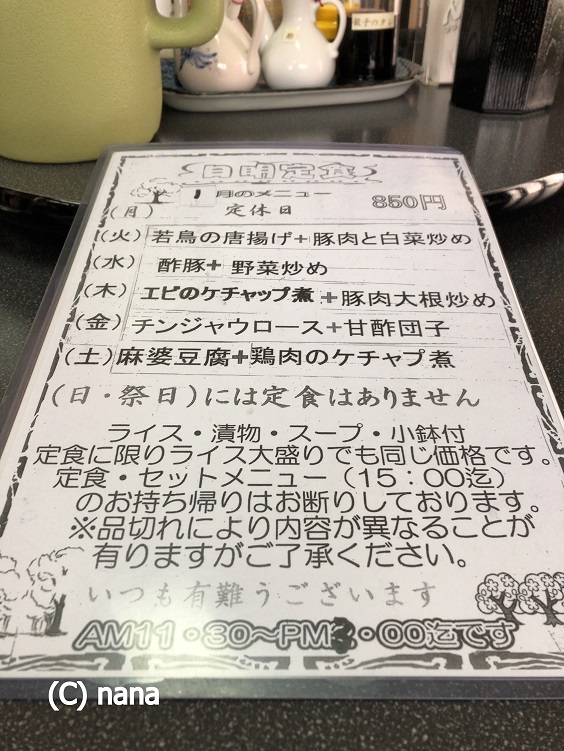 餃子のタレ
日曜定食
1月のメニュー 850円
(月) 定休日
(火) 若鳥の唐揚げ+豚肉と白菜炒め
(水) 酢豚+野菜炒め
(木) エビのケチャップ煮+豚肉大根炒め
(金) チンジャウロース+甘酢団子
(土) 麻婆豆腐+鶏肉のケチャプ煮
(日・祭日)には定食はありません
ライス・漬物・スープ・小鉢付
定食に限りライス大盛りでも同じ価格です。
定食・セットメニュー(15:00迄)
のお持ち帰りはお断りしております。
※品切れにより内容が異なることが
有りますがご了承ください。
いつも有難うございます
AM11・30〜PM・00迄です
(C) nana